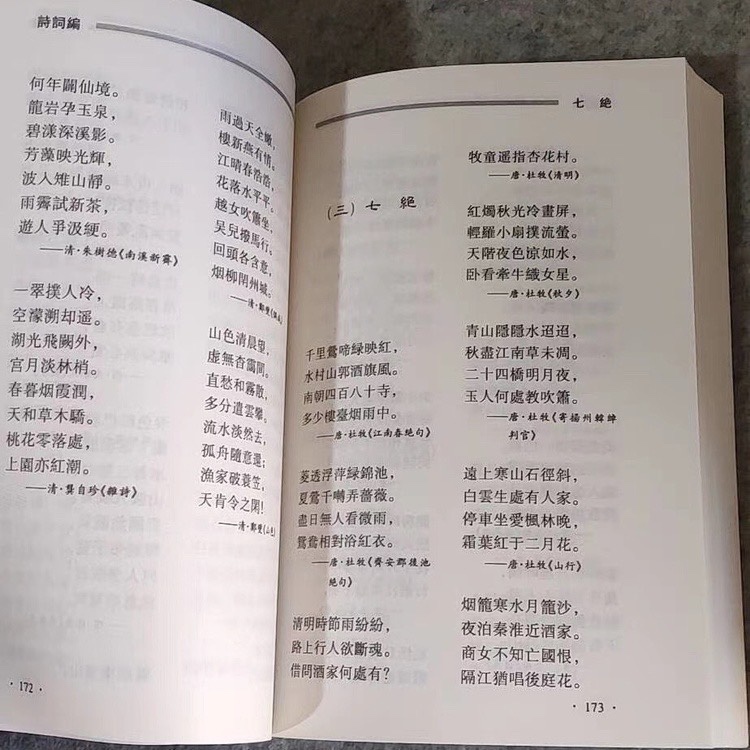 詩詞編
何年闢仙境。
龍岩孕玉泉，
碧漾深溪影。
芳藻映光輝，
波入雉山靜。
雨霽試新茶，
遊人爭汲綆。
——清·朱樹德《南溪新霽》
一翠撲人冷，
空濛溯却遥。
湖光飛闕外，
宮月淡林梢。
春暮烟霞潤，
天和草木驕。
桃花零落處，
上園亦紅潮。
——清·龔自珍《雜詩》
雨過天全嫩，
樓新燕有情。
江晴春浩浩，
花落水平平。
越女吹簫坐，
吴兒撥馬行。
回頭各含意，
烟柳閉州城。
——清·鄭燮
山色清晨望，
虛無杳靄間。
直愁和霧散，
多分遣雲攀。
流水淡然去，
孤舟隨意還；
漁家破蓑笠，
天肯令之閑！
——清·鄭燮《山色》
· 172 ·
七 絕
（三）七 絕
千里鶯啼緑映紅，
水村山郭酒旗風。
南朝四百八十寺，
多少樓臺烟雨中。
——唐·杜牧《江南春絶句》
菱透浮萍緑錦池，
夏鶯千囀弄薔薇。
盡日無人看微雨，
鴛鴦相對浴紅衣。
——唐·杜牧《齊安郡後池
絶句》
清明時節雨紛紛，
路上行人欲斷魂。
借問酒家何處有？
牧童遥指杏花村。
——唐·杜牧《清明》
紅燭秋光冷畫屏，
輕羅小扇撲流螢。
天階夜色涼如水，
卧看牽牛織女星。
——唐·杜牧《秋夕》
青山隱隱水迢迢，
秋盡江南草未凋。
二十四橋明月夜，
玉人何處教吹簫。
——唐·杜牧《寄揚州韓綽
判官》
遠上寒山石徑斜，
白雲生處有人家。
停車坐愛楓林晚，
霜葉紅于二月花。
——唐·杜牧《山行》
烟籠寒水月籠沙，
夜泊秦淮近酒家。
商女不知亡國恨，
隔江猶唱後庭花。
· 173 ·